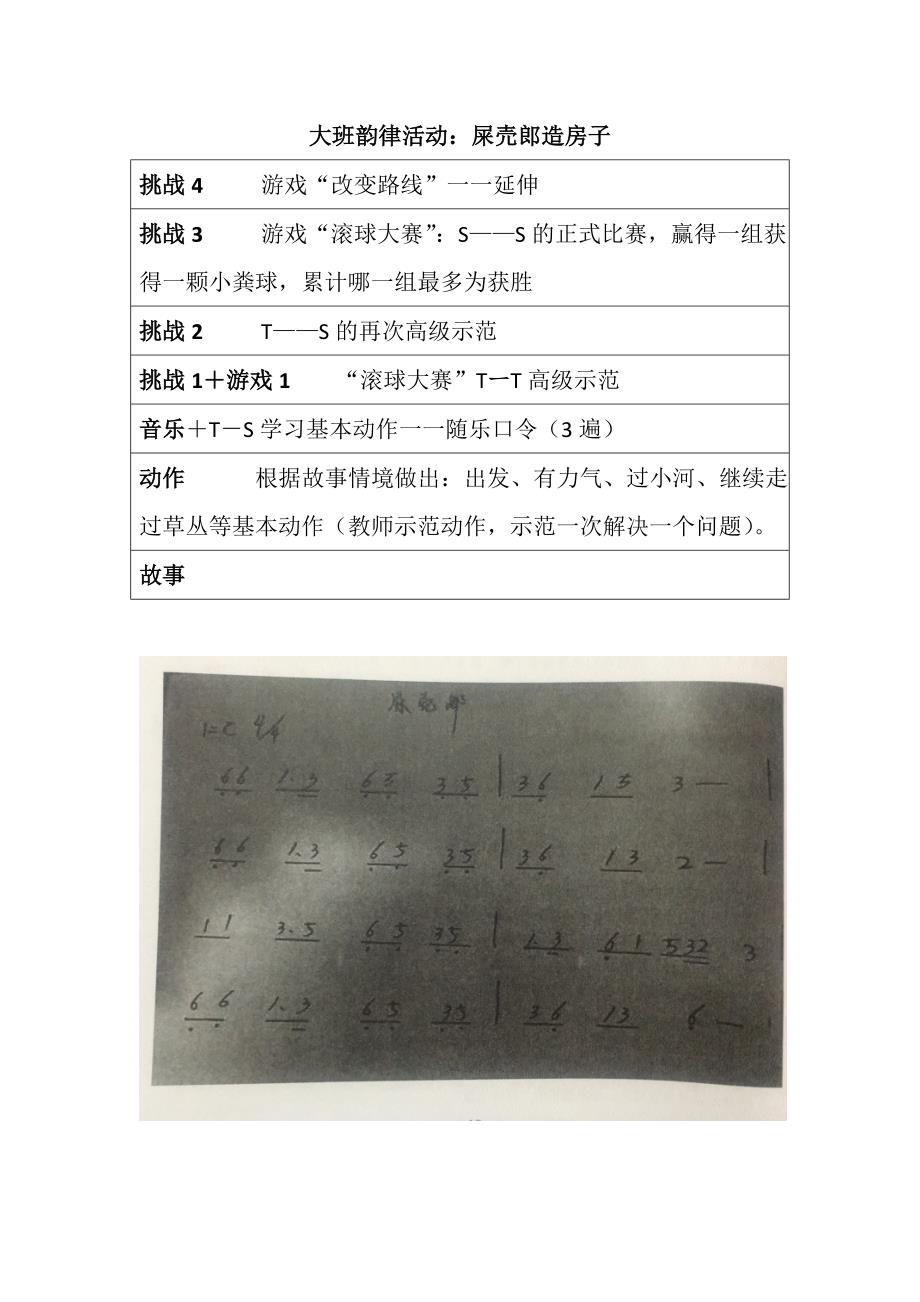 大班韵律活动：屎壳郎造房子
挑战 4 游戏“改变路线”一一延伸
挑战 3 游戏“滚球大赛”：S——S 的正式比赛，赢得一组获
得一颗小粪球，累计哪一组最多为获胜
挑战 2 T——S 的再次高级示范
挑战 1＋游戏 1 “滚球大赛”T一T 高级示范
音乐＋T－S 学习基本动作一一随乐口令（3 遍）
动作 根据故事情境做出：出发、有力气、过小河、继续走
过草丛等基本动作（教师示范动作，示范一次解决一个问题）。
故事
屎壳郎
1=C 4/4
66 1.3 65 35 | 36 15 3 — |
66 1.3 65 35 | 36 13 2 — |
11 3.5 65 35 | 13 61 532 3
66 1.3 65 35 | 36 13 6 — |